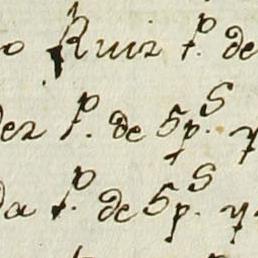 o Ruiz fᵖ. de
dez fᵖ. de 5pˢ. y
da fᵖ. de 5pˢ. y